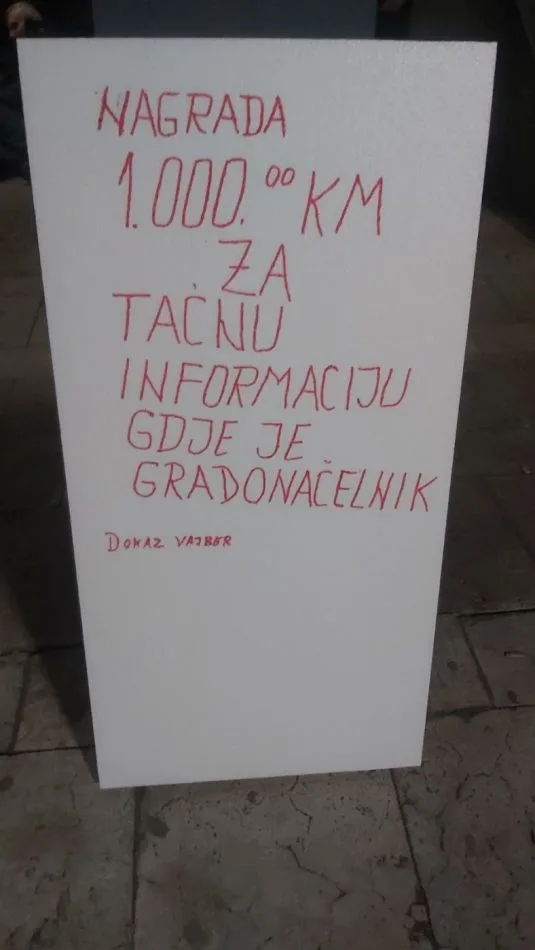 NAGRADA
1.000.⁰⁰ KM
ZA
TAČNU
INFORMACIJU
GDJE JE
GRADONAČELNIK
DOKAZ VAJBER